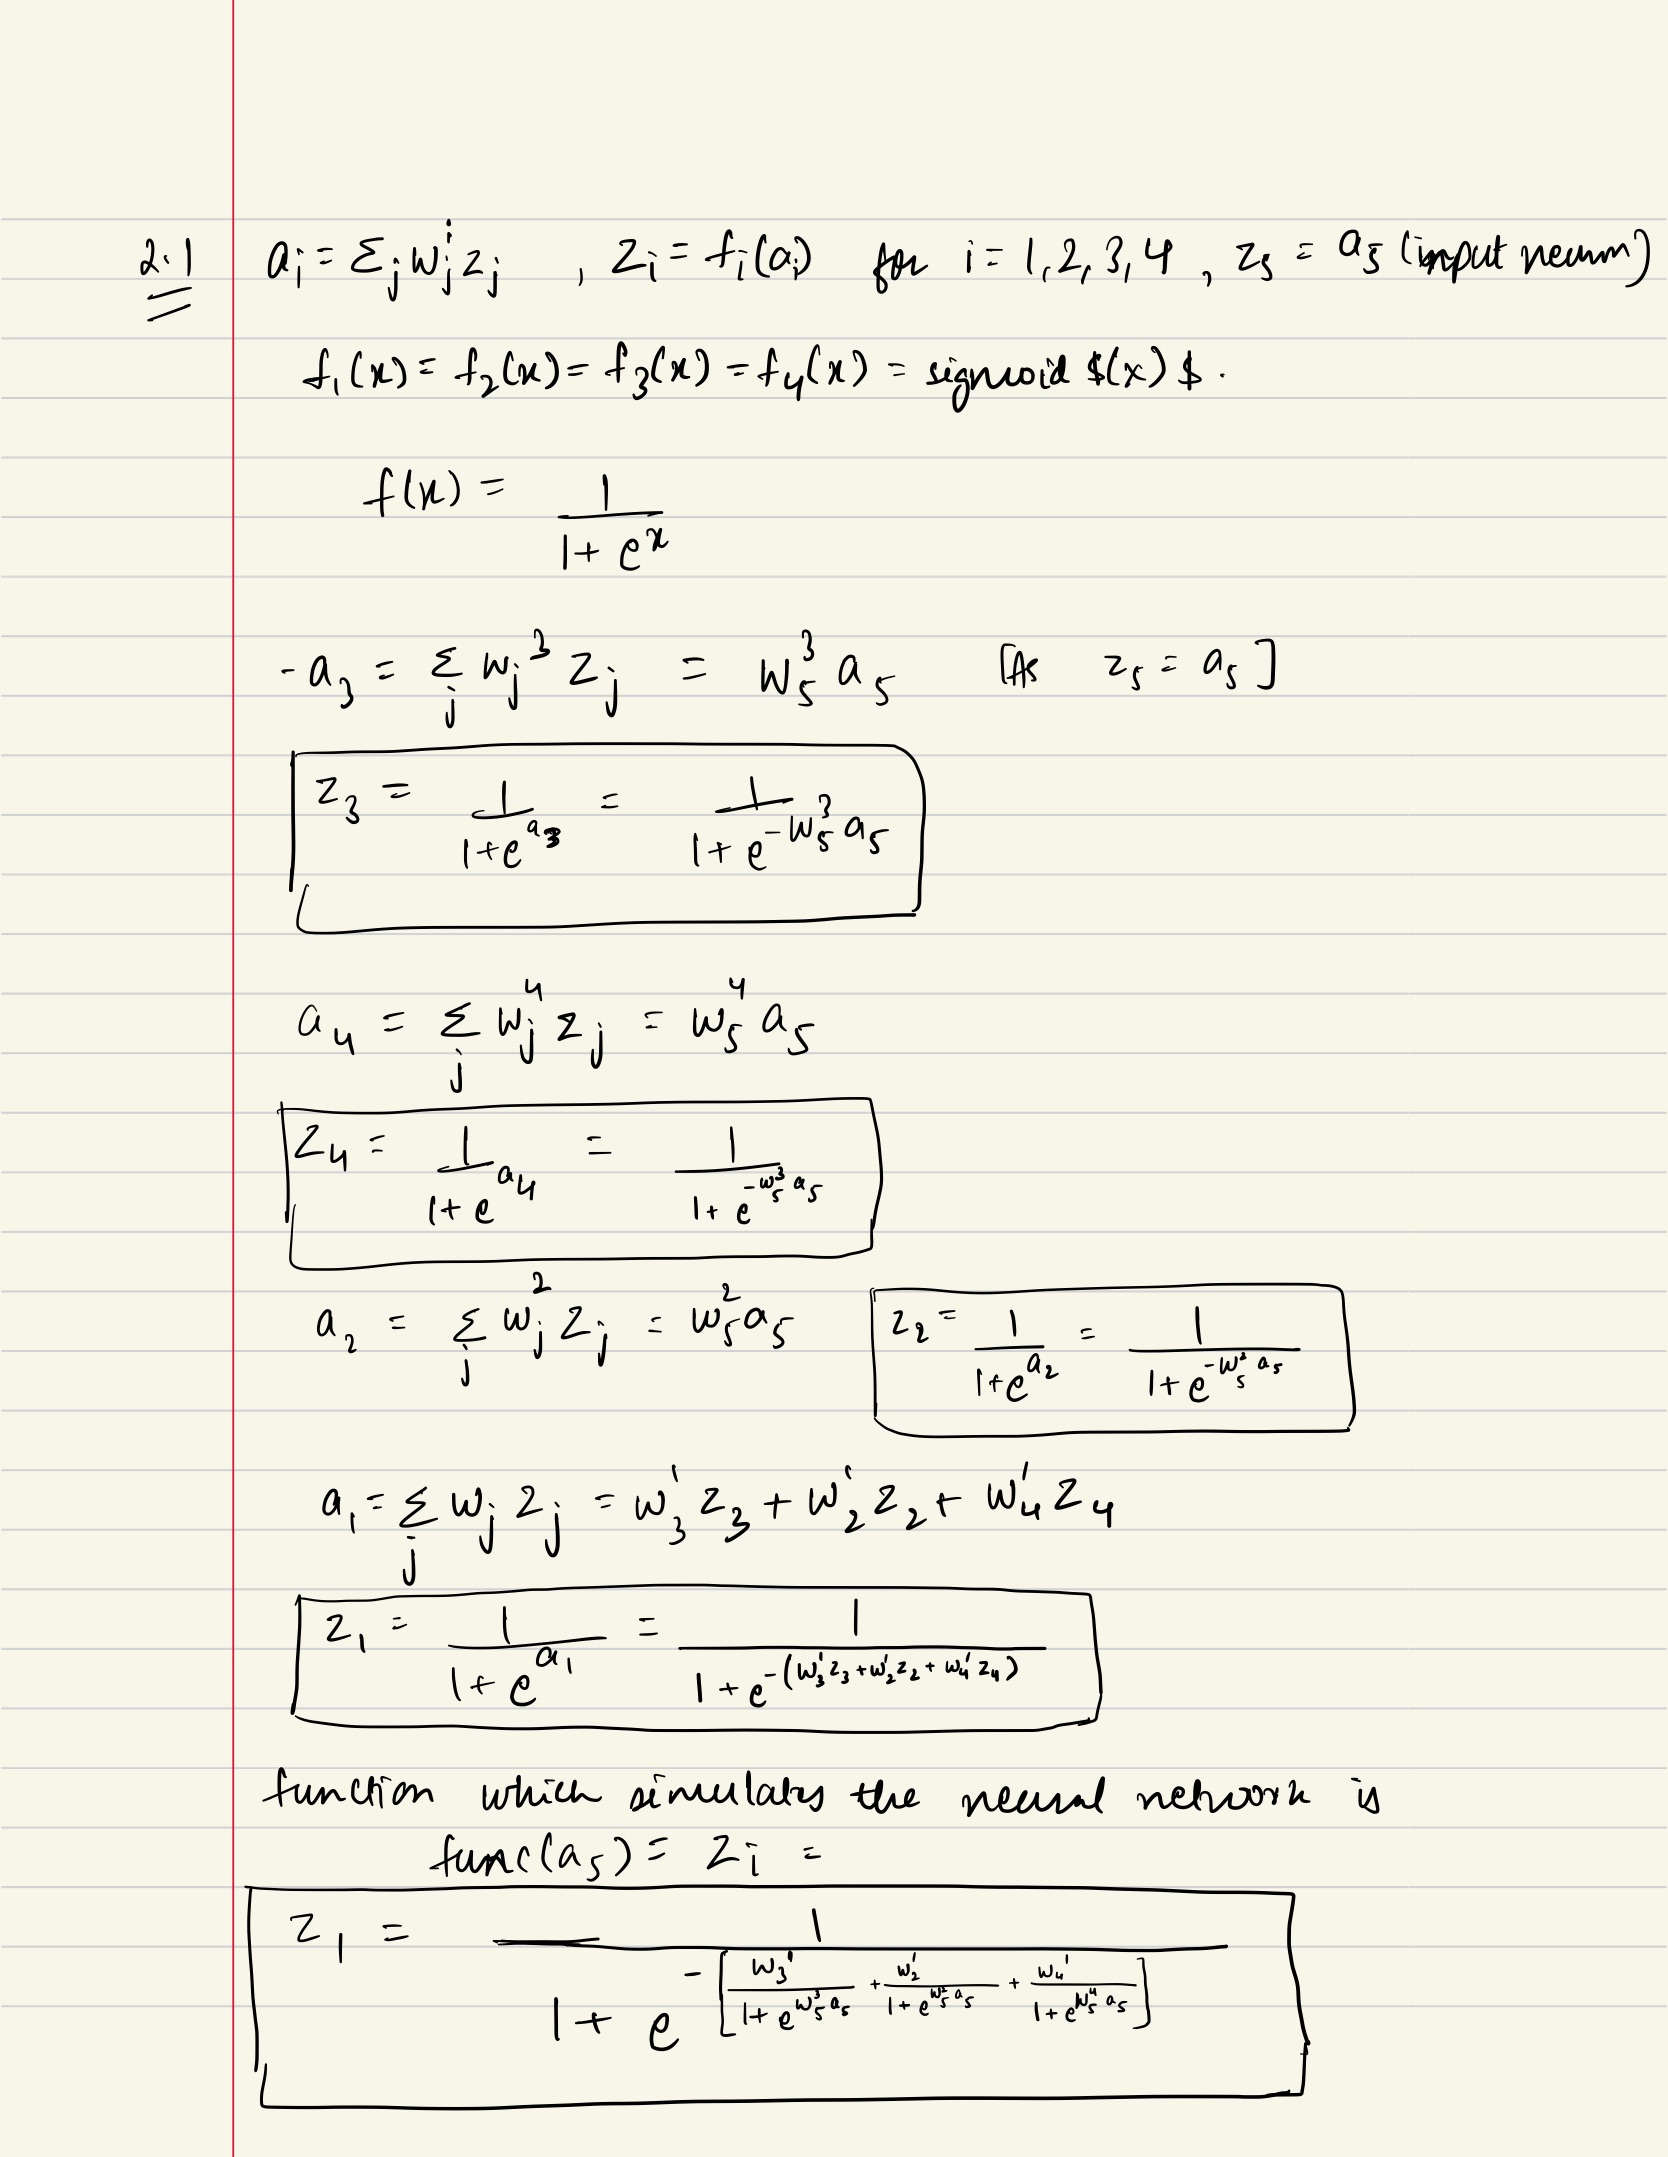 2.1 a_i = Σ_j w_j^i z_j , z_i = f_i(a_i) for i = 1, 2, 3, 4 , z_5 = a_5 (input neuron)
f_1(x) = f_2(x) = f_3(x) = f_4(x) = sigmoid $(x)$.
f(x) = 1 / (1 + e^x)
- a_3 = Σ_j w_j^3 z_j = w_5^3 a_5 [As z_5 = a_5]
z_3 = 1 / (1 + e^{a_3}) = 1 / (1 + e^{-w_5^3 a_5})
a_4 = Σ_j w_j^4 z_j = w_5^4 a_5
z_4 = 1 / (1 + e^{a_4}) = 1 / (1 + e^{-w_5^3 a_5})
a_2 = Σ_j w_j^2 z_j = w_5^2 a_5 z_2 = 1 / (1 + e^{a_2}) = 1 / (1 + e^{-w_5^2 a_5})
a_1 = Σ_j w_j z_j = w_3^1 z_3 + w_2^1 z_2 + w_4^1 z_4
z_1 = 1 / (1 + e^{a_1}) = 1 / (1 + e^{-(w_3^1 z_3 + w_2^1 z_2 + w_4^1 z_4)})
function which simulates the neural network is
func(a_5) = z_i =
z_1 = 1 / (1 + e^{-[w_3^1 / (1 + e^{w_5^3 a_5}) + w_2^1 / (1 + e^{w_5^2 a_5}) + w_4^1 / (1 + e^{w_5^4 a_5})]})